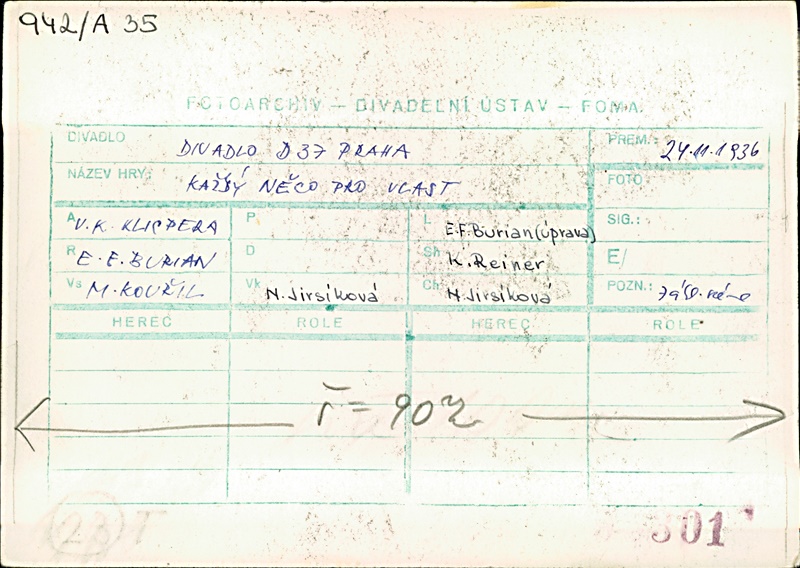 942/A 35
FOTOARCHIV – DIVADELNÍ ÚSTAV – FOMA
DIVADLO DIVADLO D 37 PRAHA PREM.: 24.11.1936
NÁZEV HRY: KAŽDÝ NĚCO PRO VLAST FOTO
A V. K. KLICPERA P L E.F.Burian (úprava) SIG.:
R E. F. BURIAN D Sh K. Reiner E/
Vs M. KOUŘIL Vk N. Jirsíková Ch N. Jirsíková POZN.:
HEREC ROLE HEREC ROLE
ř = 90%
23 T
501